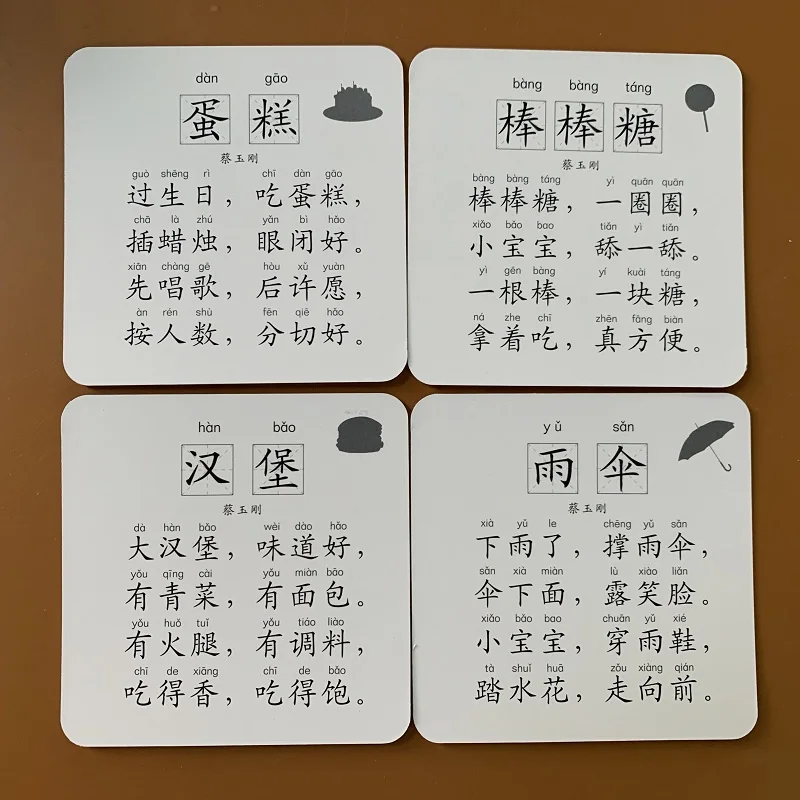 dàn gāo
蛋糕
蔡玉刚
guò shēng rì chī dàn gāo
过生日，吃蛋糕，
chā là zhú yǎn bì hǎo
插蜡烛，眼闭好。
xiān chàng gē hòu xǔ yuàn
先唱歌，后许愿，
àn rén shù fēn qiē hǎo
按人数，分切好。
bàng bàng táng
棒棒糖
蔡玉刚
bàng bàng táng yì quān quān
棒棒糖，一圈圈，
xiǎo bǎo bao tiǎn yì tiǎn
小宝宝，舔一舔。
yì gēn bàng yí kuài táng
一根棒，一块糖，
ná zhe chī zhēn fāng biàn
拿着吃，真方便。
hàn bǎo
汉堡
蔡玉刚
dà hàn bǎo wèi dào hǎo
大汉堡，味道好，
yǒu qīng cài yǒu miàn bāo
有青菜，有面包。
yǒu huǒ tuǐ yǒu tiáo liào
有火腿，有调料，
chī de xiāng chī de bǎo
吃得香，吃得饱。
yǔ sǎn
雨伞
蔡玉刚
xià yǔ le chēng yǔ sǎn
下雨了，撑雨伞，
sǎn xià miàn lù xiào liǎn
伞下面，露笑脸。
xiǎo bǎo bao chuān yǔ xié
小宝宝，穿雨鞋，
tà shuǐ huā zǒu xiàng qián
踏水花，走向前。